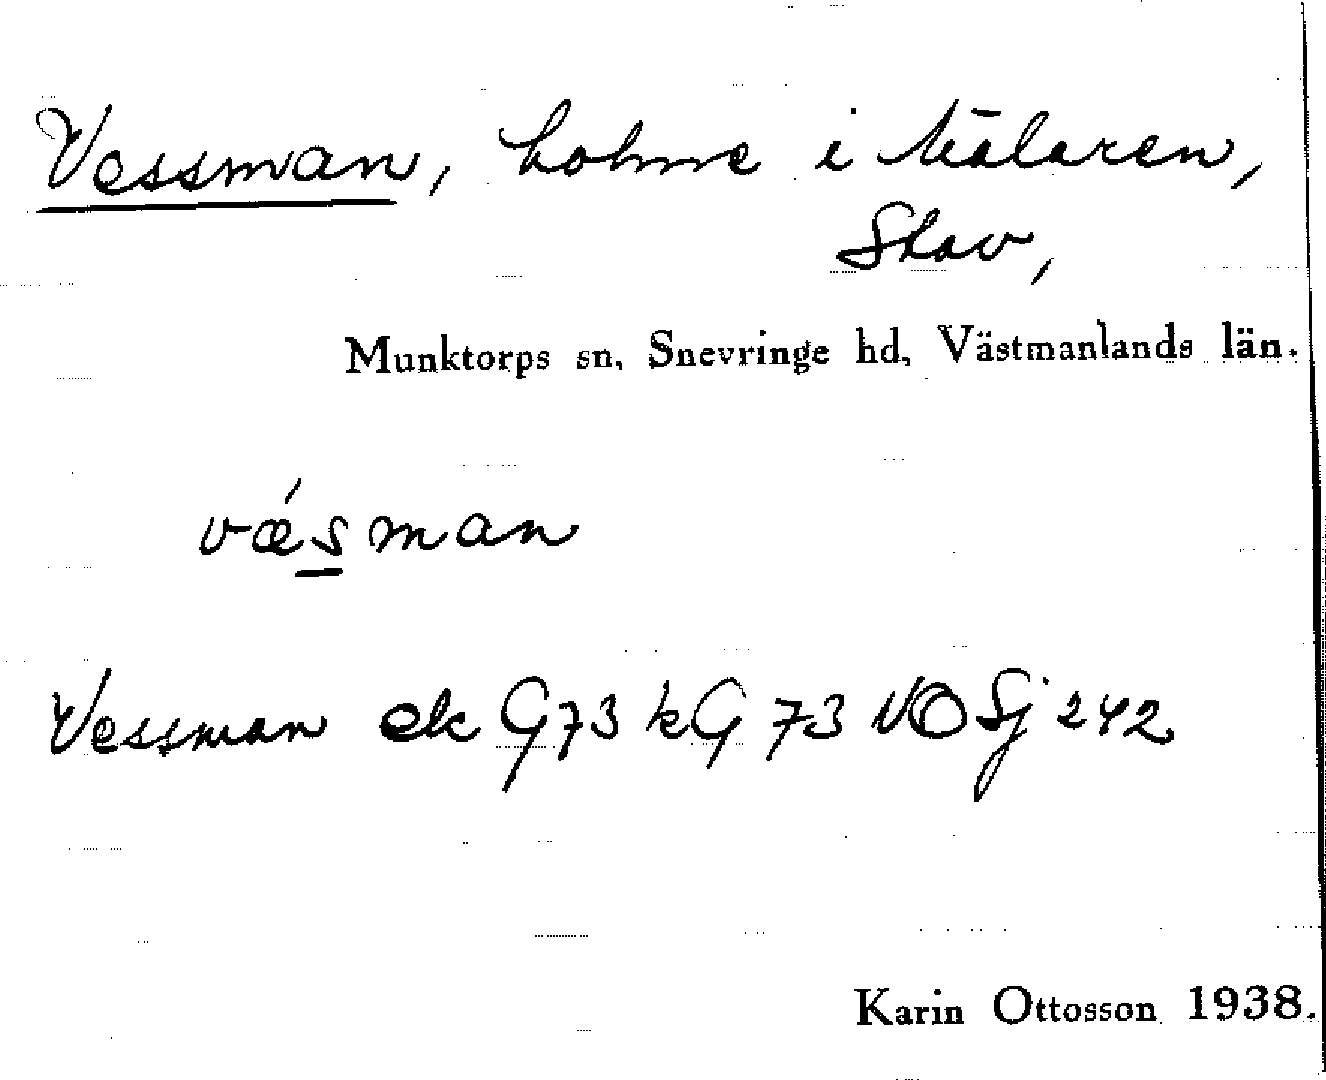 Vessman, holme i Mälaren,
Skav,
Munktorps sn, Snevringe hd, Västmanlands län.
væ´sman
Vessman ek G73 kG 73 VO Sj 242
Karin Ottosson 1938.